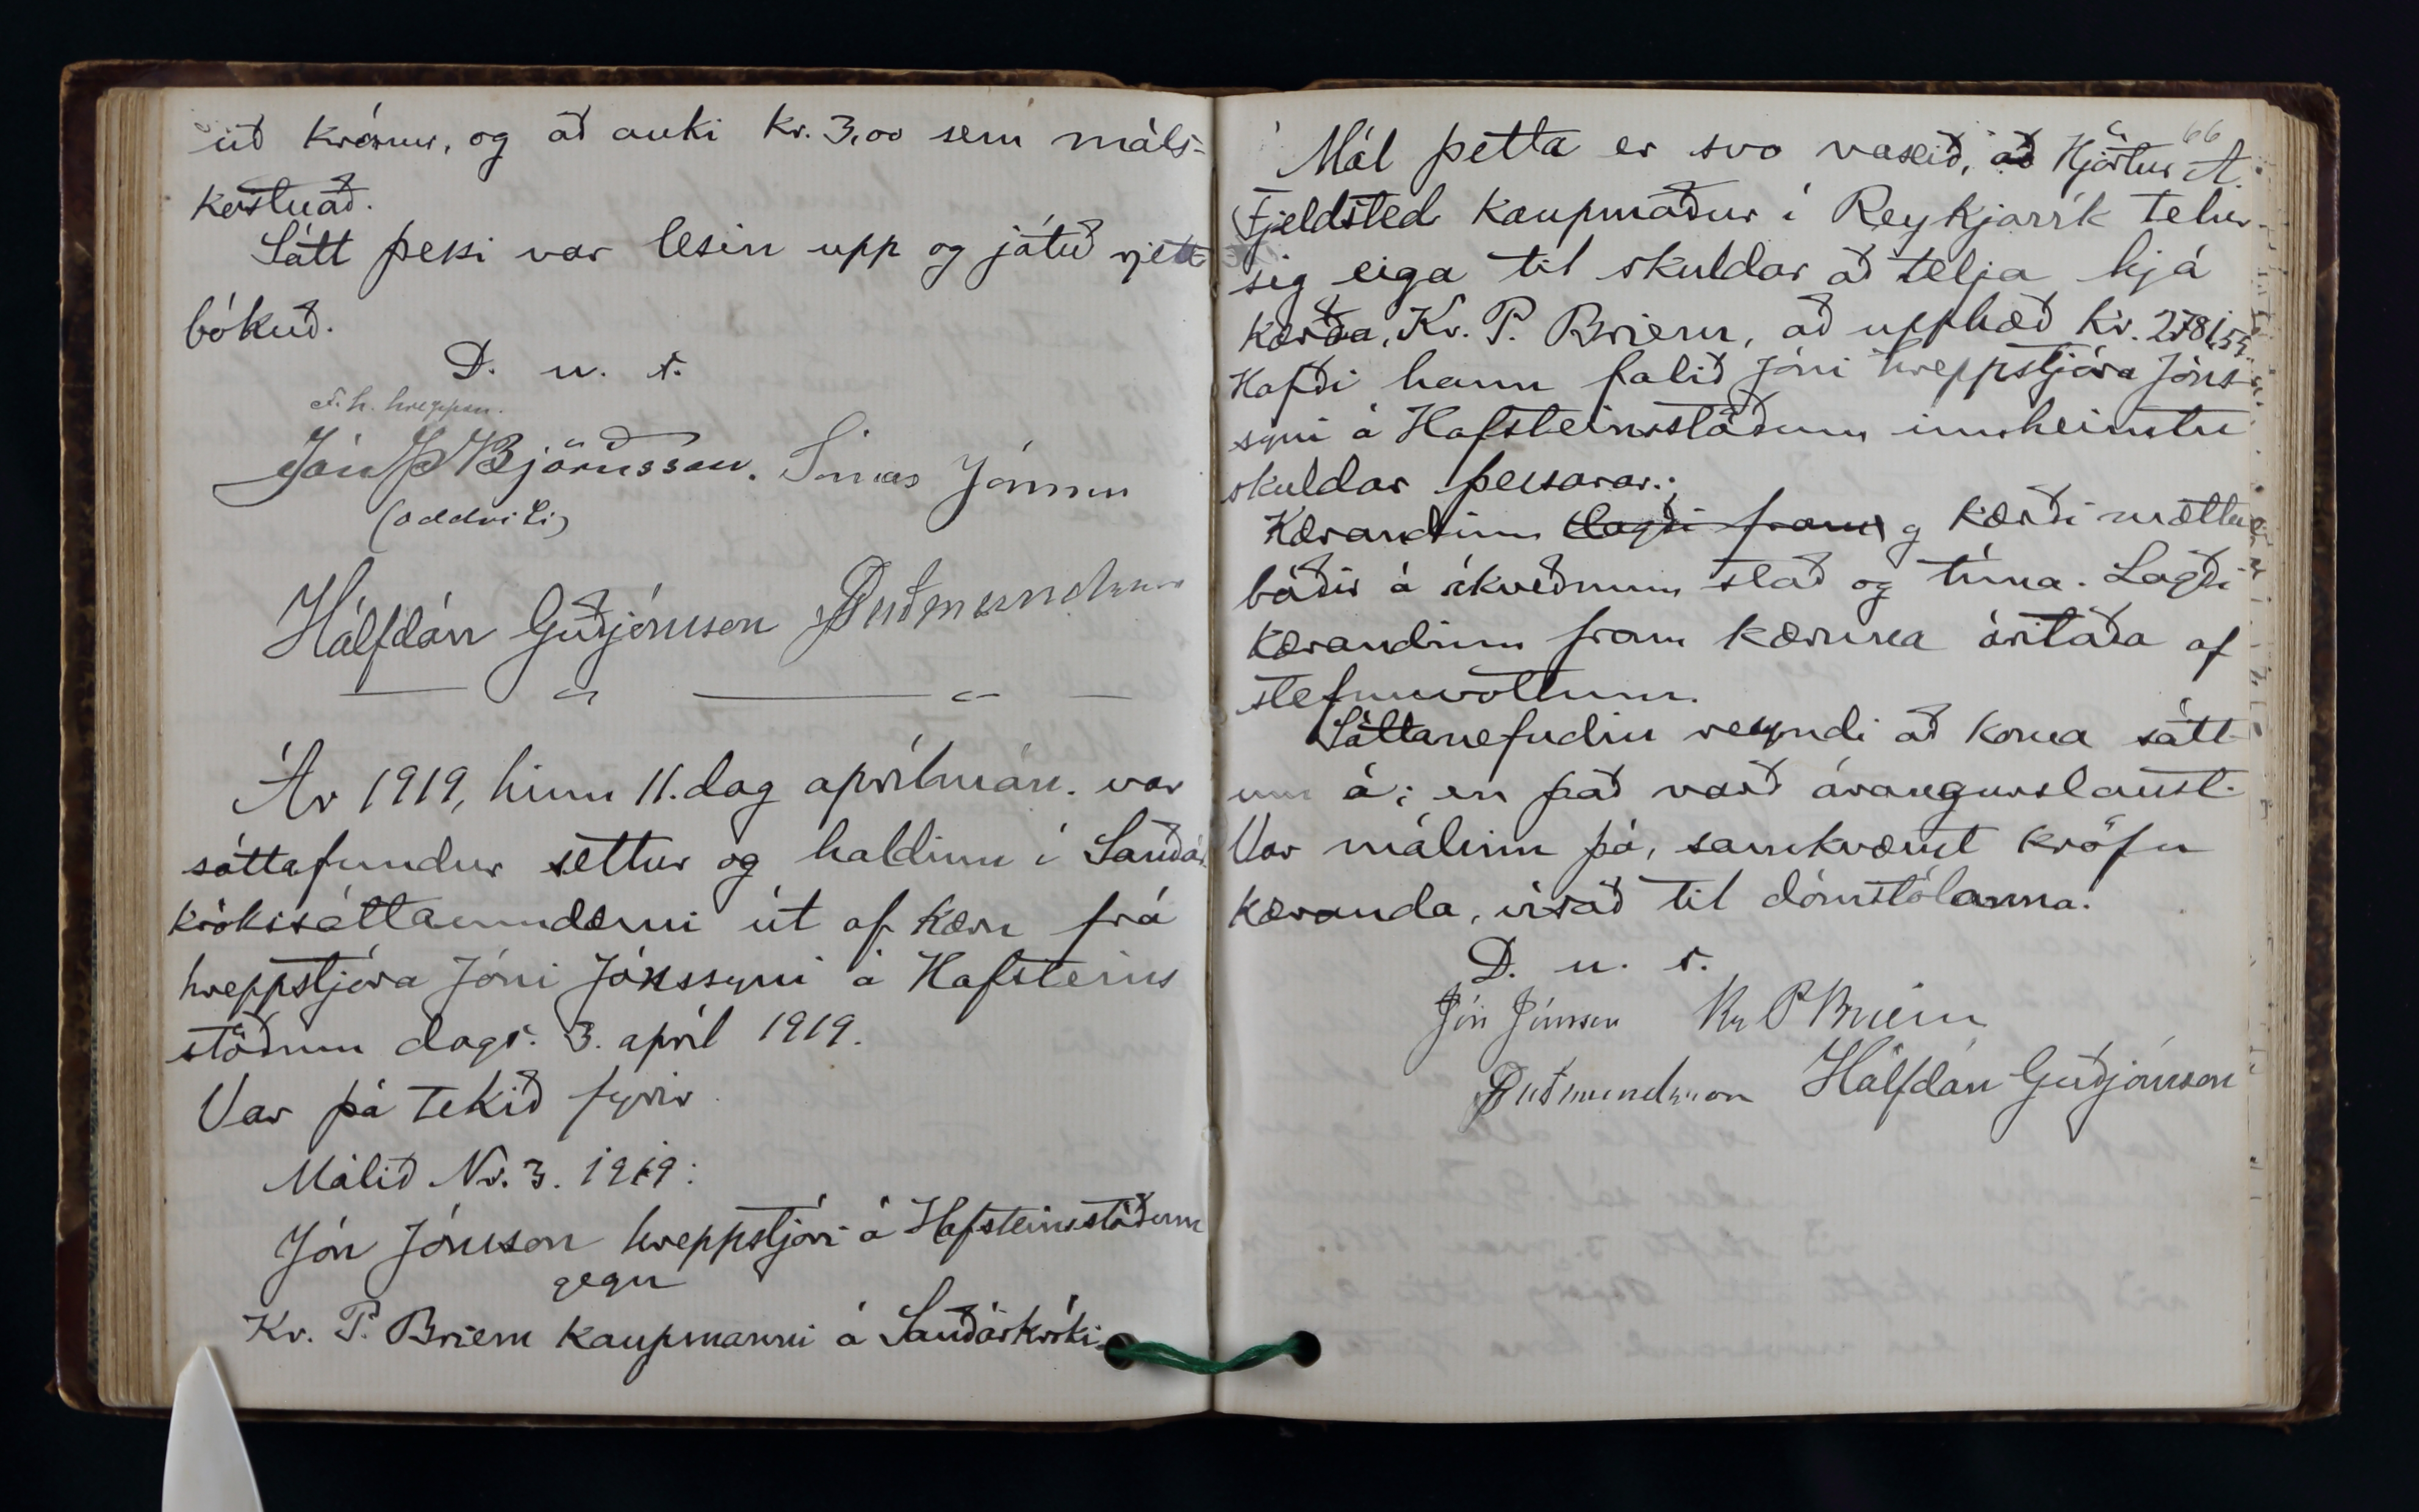 uð krónur, og að auki kr. 3,00 sem máls-
kostnað.
Sátt þessi var lesin upp og játuð rjett
bókuð.
D. u. s.
F. h. hreppsn.
Jón Þ Björnsson. Sinar Jónsson
(oddviti)
Hálfdán Guðjónsson PGuðmundsson
Ár 1919, hinn 11. dag aprílmán. var
sáttafundur settur og haldinn í Sauðár
krókssáttaumdæmi út af kæru frá
hreppstjóra Jóni Jónssyni á Hafsteins
stöðum dags. 3. apríl 1919.
Var þá tekið fyrir
Málið Nr. 3. 1919:
Jón Jónsson hreppstjóri á Hafsteinsstöðum
gegn
Kr. P. Briem kaupmanni á Sauðárkróki.
66
Mál þetta er svo vaxið, að Hjörtur A.
Fjeldsted kaupmaður í Reykjavík telur
sig eiga til skuldar að telja hjá
kærða, Kr. P. Briem, að upphæð kr. 2781,55.
Hafði hann falið Jóni hreppstjóra Jóns-
syni á Hafsteinsstöðum innheimtu
skuldar þessarar.
Kærandinn lagði fram og kærði mættu
báðir á ákveðnum stað og tíma. Lagði
kærandinn fram kæruna áritaða af
stefnuvottum.
Sáttanefndin reyndi að koma sátt-
um á; en það varð árangurslaust.
Var málinu þá, samkvæmt kröfu
kæranda, vísað til dómstólanna.
D. u. s.
Jón Jónsson Kr P Briem
PGuðmundsson Hálfdán Guðjónsson